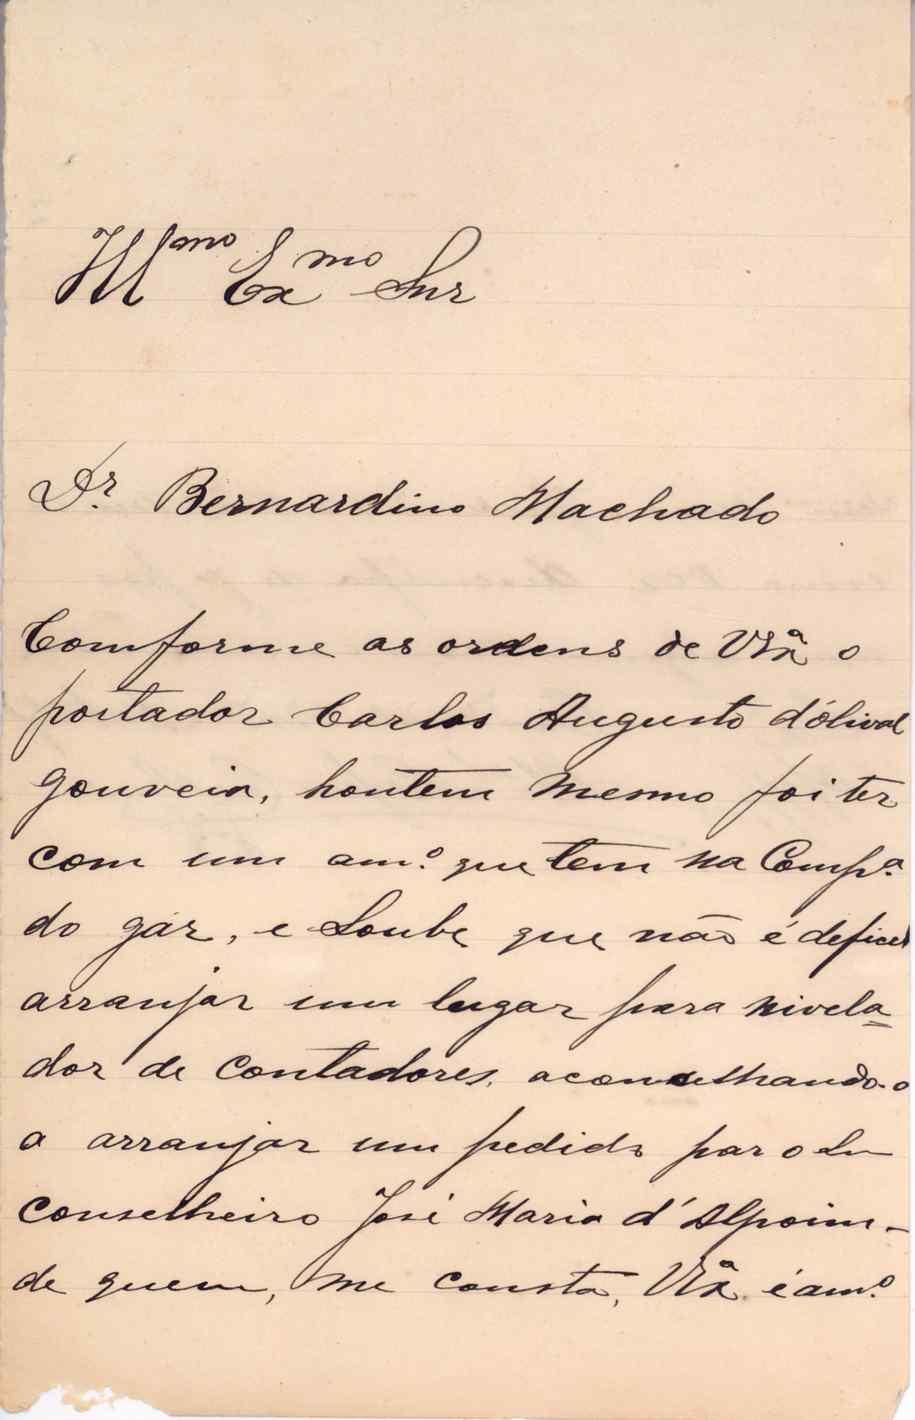 Illmo Exmo Snr
Dr. Bernardino Machado
Comforme as ordens de VExª o
portador Carlos Augusto d'ólival
Gouveia, hontem mesmo foi ter
com um amº que tem na Compª
do gáz, e Soube que não é deficel
arranjar um lugar para nivela=
dor de contadores, aconselhando-o
a arranjar um pedido par o Sn
conselheiro José Maria d'Alpoim-
de quem, me consta, VExª é amº